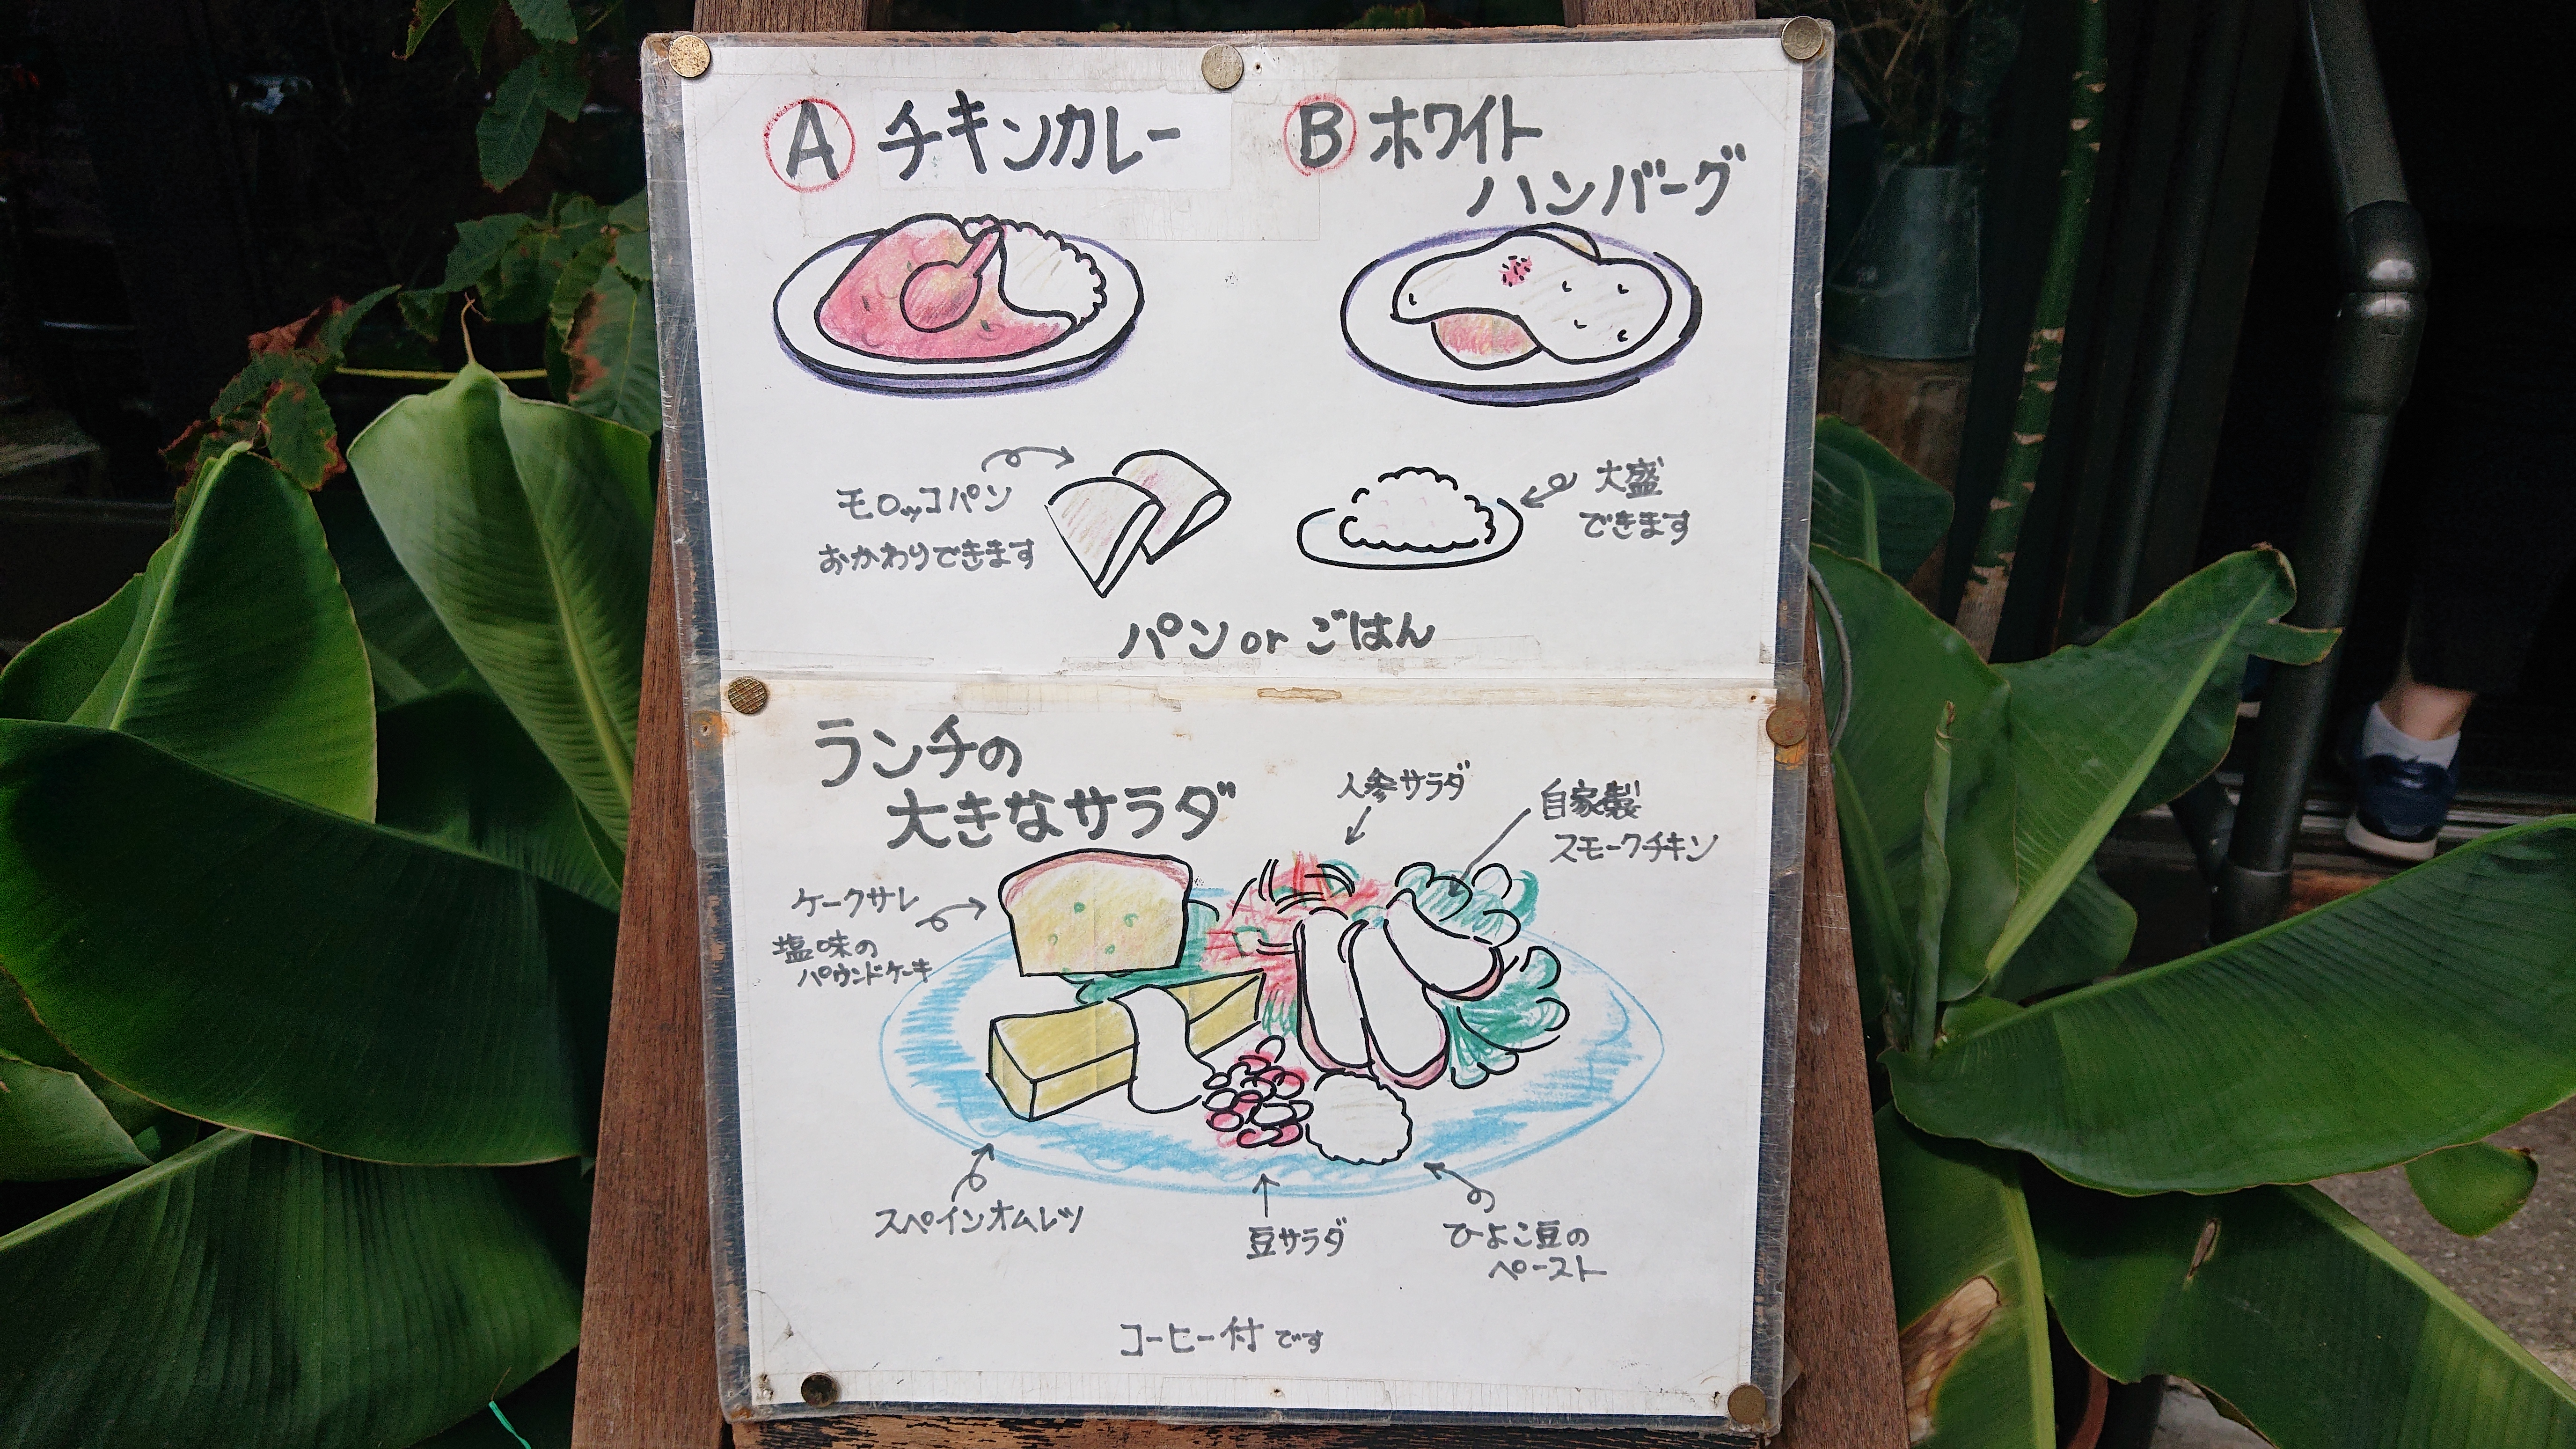 A チキンカレー
B ホワイト
ハンバーグ
モロッコパン
おかわりできます
大盛
できます
パン or ごはん
ランチの
大きなサラダ
人参サラダ
自家製
スモークチキン
ケークサレ
塩味の
パウンドケーキ
スペインオムレツ
豆サラダ
ひよこ豆の
ペースト
コーヒー付です